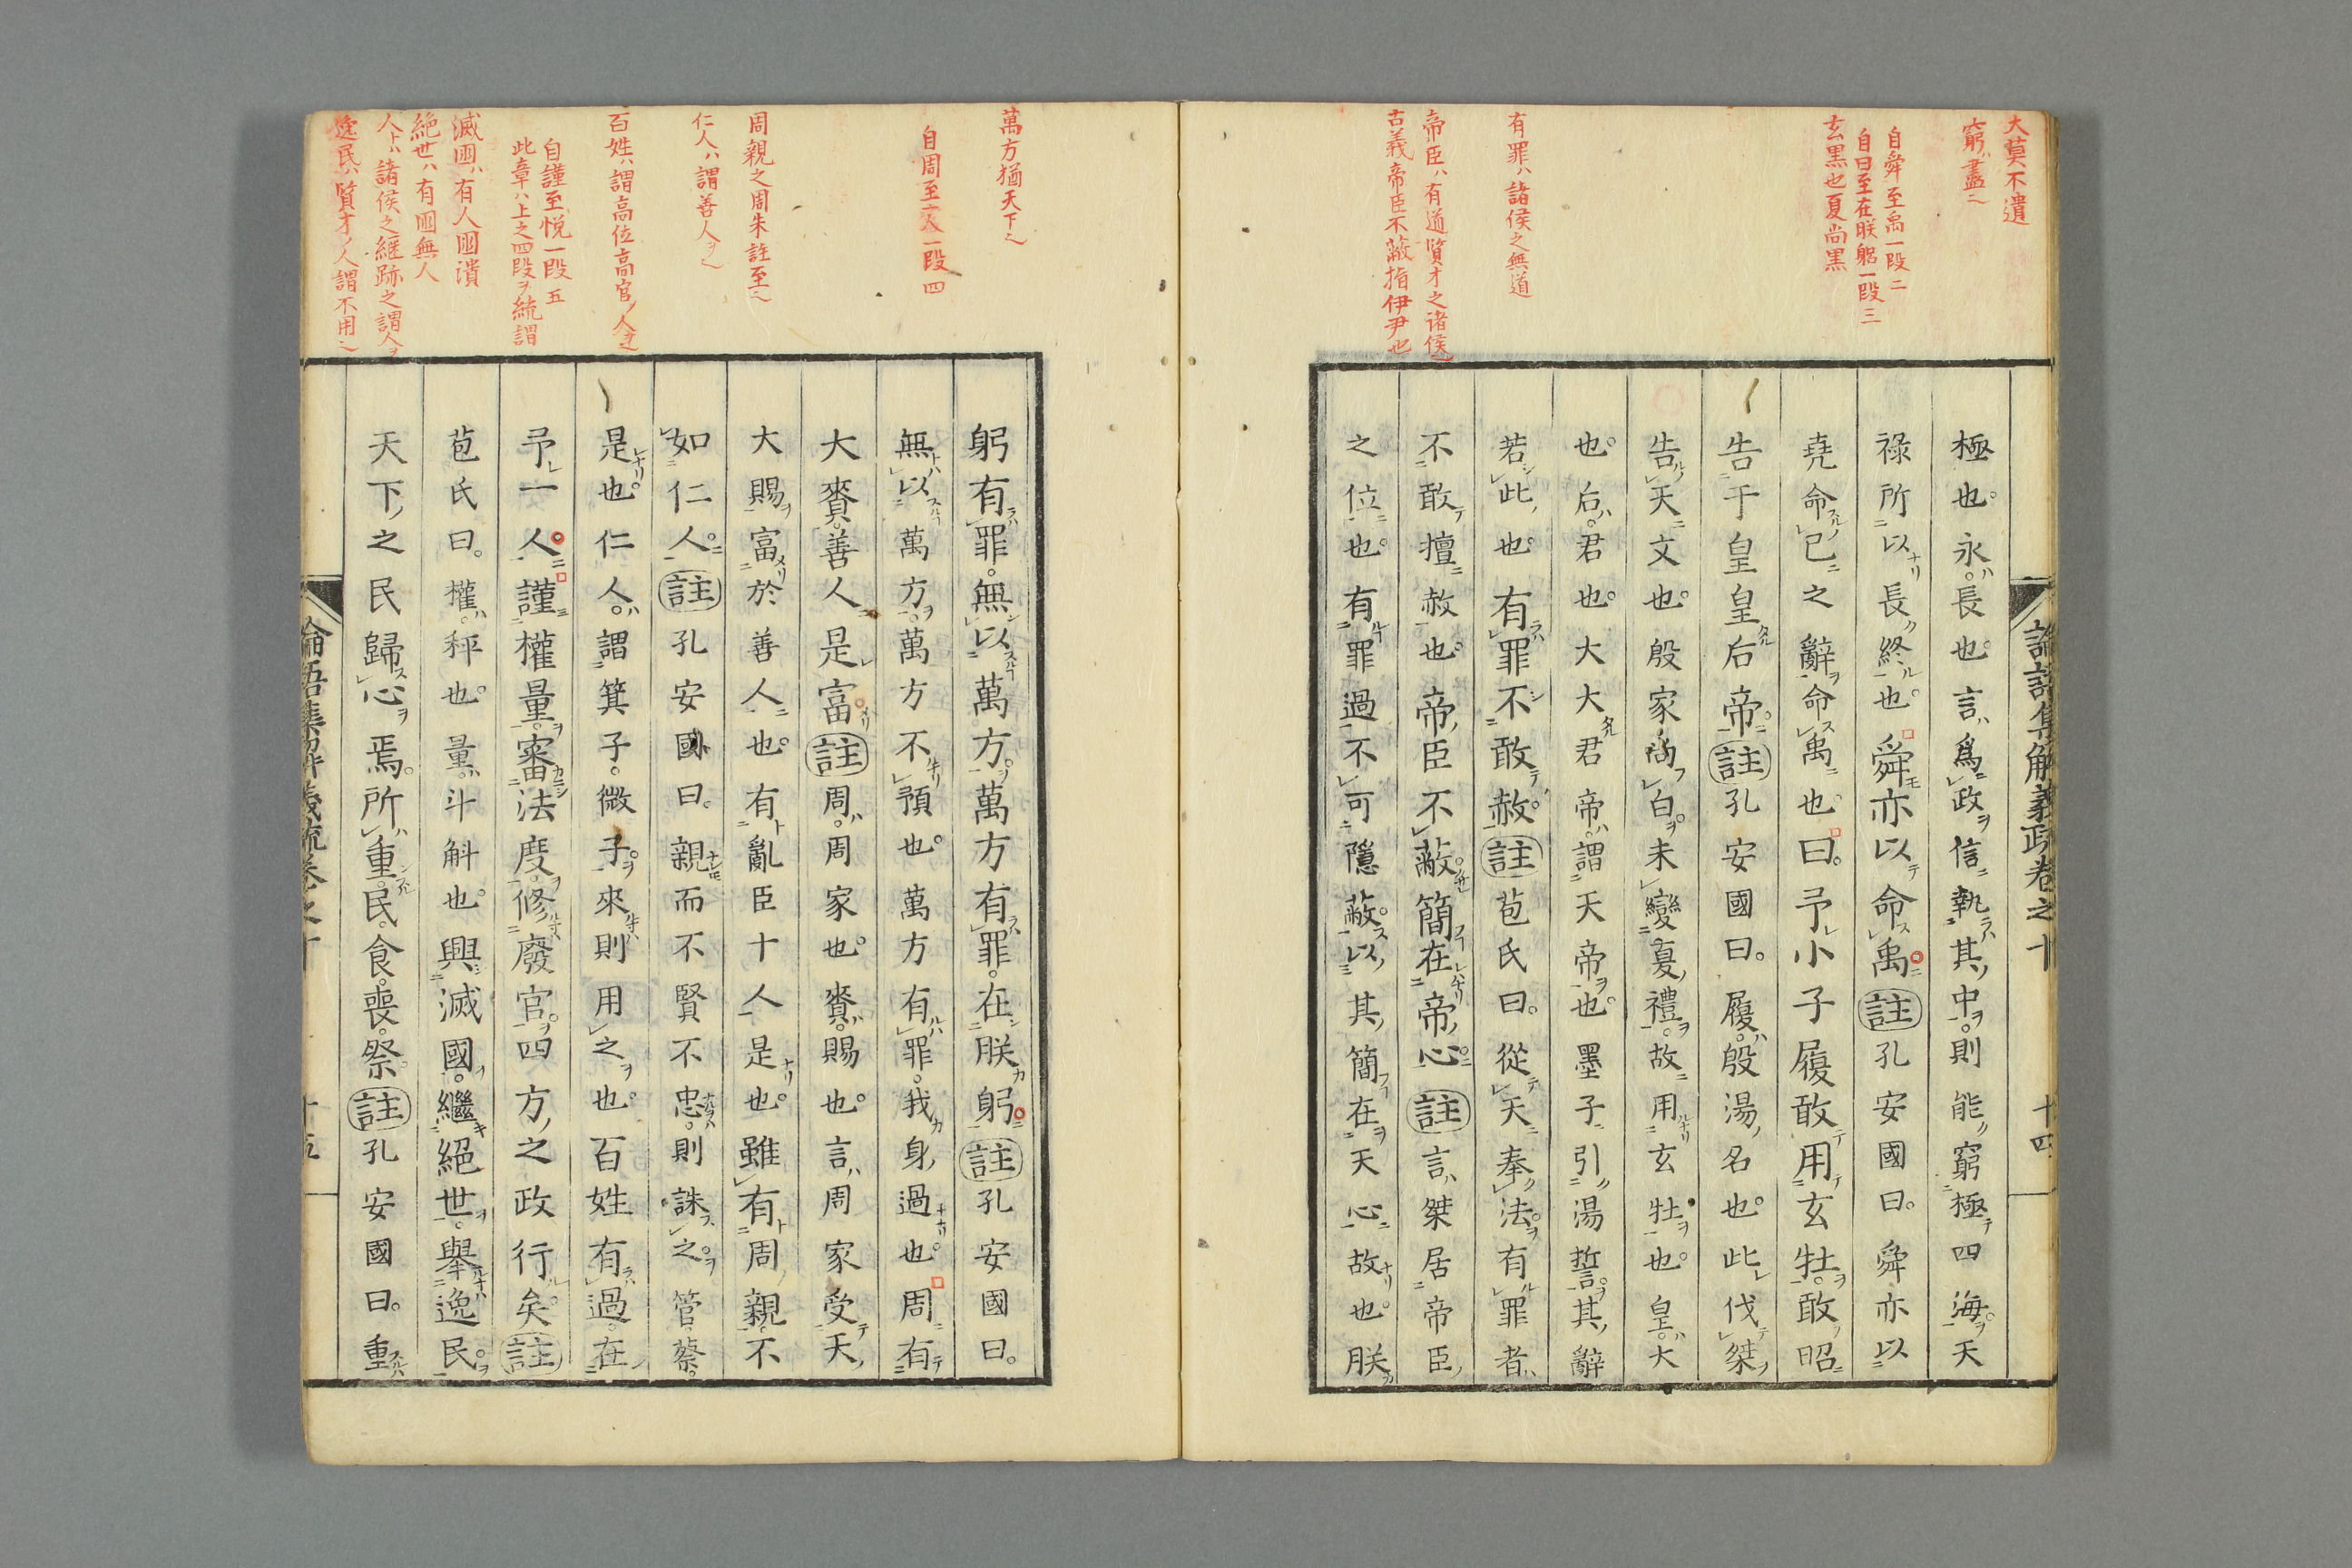 大莫不遺
窮ハ盡
自舜至禹一段二
自曰至在朕躬一段三
玄黒也夏尚黒
有罪ハ諸侯之無道
帝臣ハ有道賢才之諸侯
古義帝臣不蔽指伊尹也
極也永長也言爲政信執其中則能窮極四海天
祿所以長終也舜亦以命禹註孔安國曰舜亦以
堯命已之辭命禹也曰予小子履敢用玄牡敢昭
告于皇皇后帝註孔安國曰履殷湯名也此伐桀
告天文也殷家尚白未變夏禮故用玄牡也皇大
也后君也大大君帝謂天帝也墨子引湯誓其辭
若此也有罪不敢赦註苞氏曰從天奉法有罪者
不敢擅赦也帝臣不蔽簡在帝心註言桀居帝臣
之位也有罪過不可隱蔽以其簡在天心故也朕
十四
萬方猶天下
自周至一人一段四
周親之周朱註至
仁人ハ謂善人ヲ
百姓ハ謂高位高官ノ人
自謹至悦一段五
此章ハ上之四段ヲ統謂
滅國ハ有人國潰
絶世ハ有國無人
人トハ諸侯之継跡之謂人ヲ
逸民ハ賢才ノ人謂不用
躬有罪無以萬方萬方有罪在朕躬註孔安國曰
無以萬方萬方不預也萬方有罪我身過也周有
大賚善人是富註周周家也賚賜也言周家受天
大賜富於善人也有亂臣十人是也雖有周親不
如仁人註孔安國曰親而不賢不忠則誅之管蔡
是也仁人謂箕子微子來則用之也百姓有過在
予一人謹權量審法度修廢官四方之政行矣註
苞氏曰權秤也量斗斛也興滅國繼絕世舉逸民
天下之民歸心焉所重民食喪祭註孔安國曰重
論語集解義疏卷之十
十五